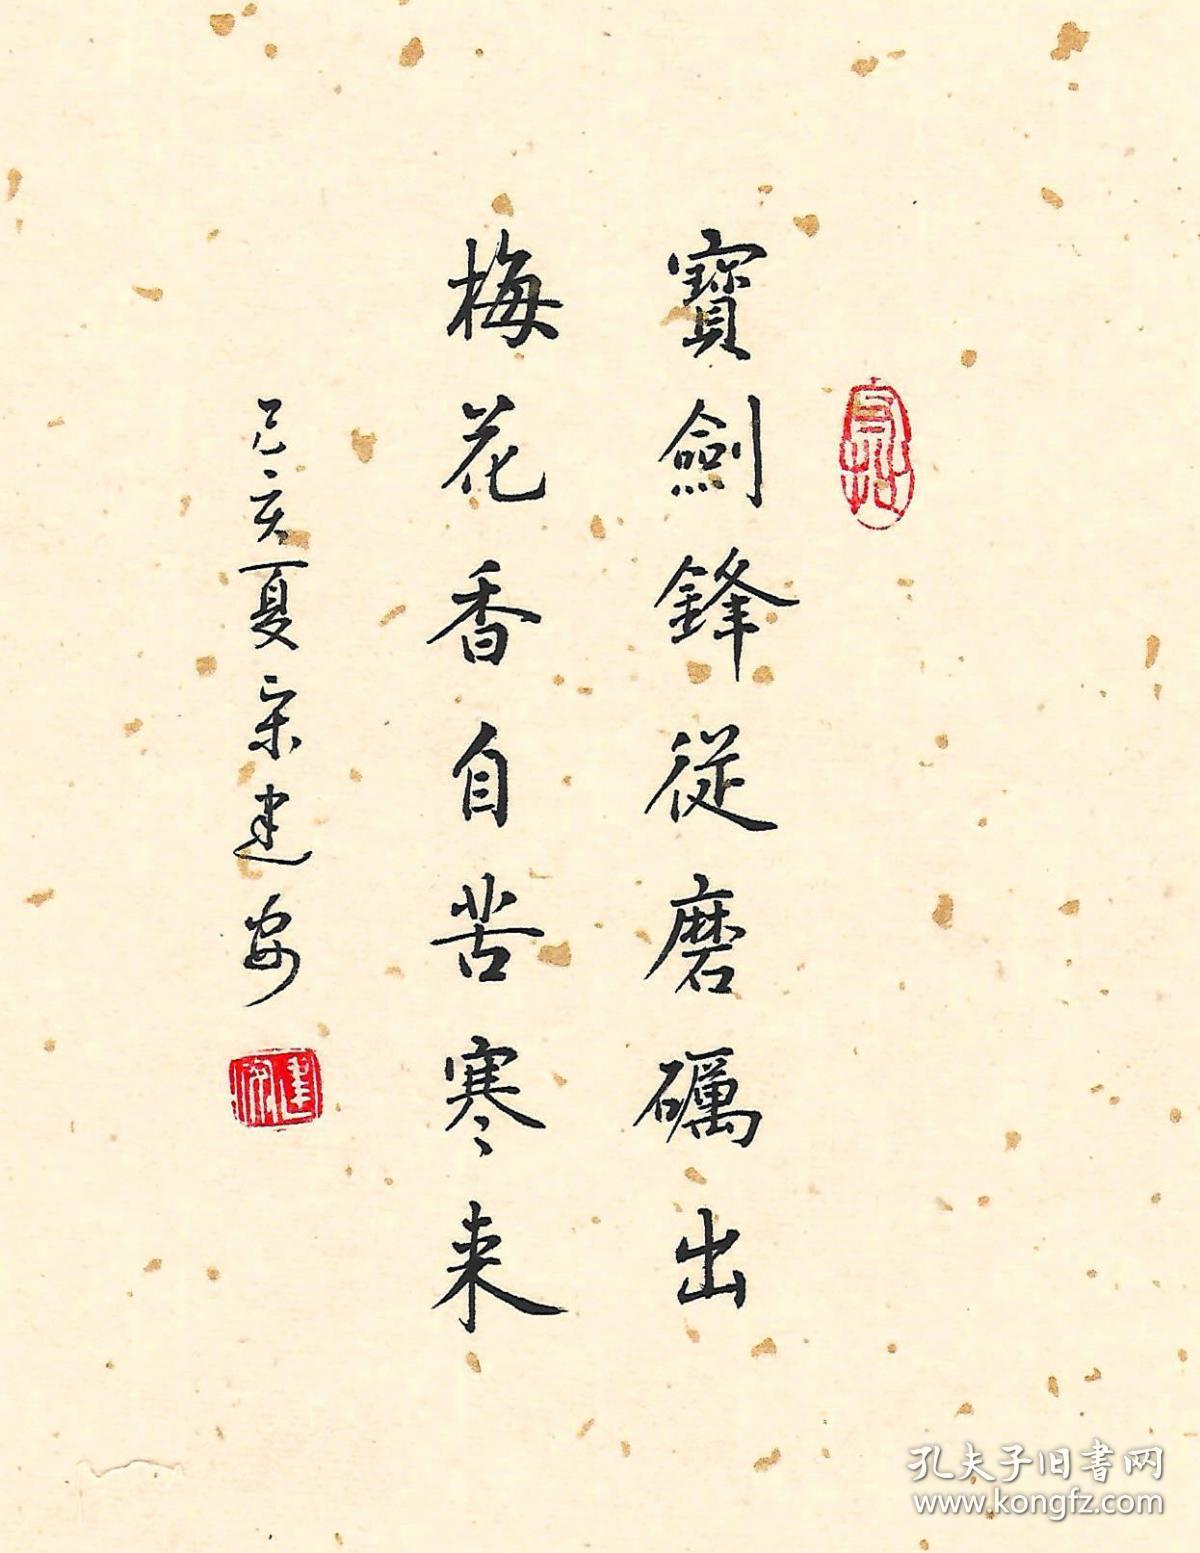 寶劍鋒從磨礪出
梅花香自苦寒来
己亥夏宋建安
建安
孔夫子旧書网
www.kongfz.com